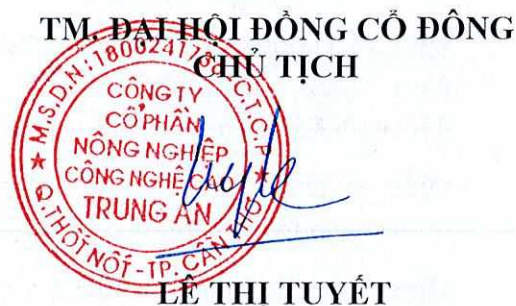 TM. ĐẠI HỘI ĐỒNG CỔ ĐÔNG
CHỦ TỊCH
M.S.D.N: 1800241736-C.T.C.P
CÔNG TY
CỔ PHẦN
NÔNG NGHIỆP
CÔNG NGHỆ CAO
TRUNG AN
Q. THỐT NỐT - TP. CẦN THƠ
LÊ THỊ TUYẾT